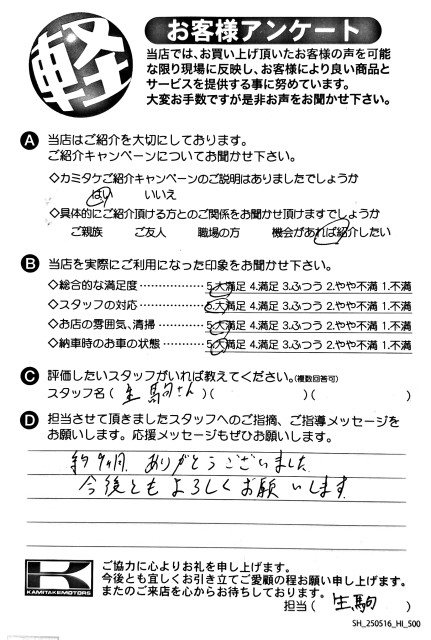 軽
お客様アンケート
当店では、お買い上げ頂いたお客様の声を可能
な限り現場に反映し、お客様により良い商品と
サービスを提供する事に努めています。
大変お手数ですが是非お声をお聞かせ下さい。
A 当店はご紹介を大切にしております。
ご紹介キャンペーンについてお聞かせ下さい。
◇カミタケご紹介キャンペーンのご説明はありましたでしょうか
はい いいえ
◇具体的にご紹介頂ける方とのご関係をお聞かせ頂けますでしょうか
ご親族 ご友人 職場の方 機会があれば紹介したい
B 当店を実際にご利用になった印象をお聞かせ下さい。
◇総合的な満足度……………5.大満足 4.満足 3.ふつう 2.やや不満 1.不満
◇スタッフの対応……………5.大満足 4.満足 3.ふつう 2.やや不満 1.不満
◇お店の雰囲気、清掃…………5.大満足 4.満足 3.ふつう 2.やや不満 1.不満
◇納車時のお車の状態…………5.大満足 4.満足 3.ふつう 2.やや不満 1.不満
C 評価したいスタッフがいれば教えてください。(複数回答可)
スタッフ名(生駒さん)( )( )
D 担当させて頂きましたスタッフへのご指摘、ご指導メッセージを
お願いします。応援メッセージもぜひお願いします。
約9ヶ月、ありがとうございました。
今後ともよろしくお願いします。
KAMITAKEMOTORS
ご協力に心よりお礼を申し上げます。
今後とも宜しくお引き立てご愛顧の程お願い申し上げます。
またのご来店を心からお待ちしております。
担当(生駒)
SH_250516_HI_500